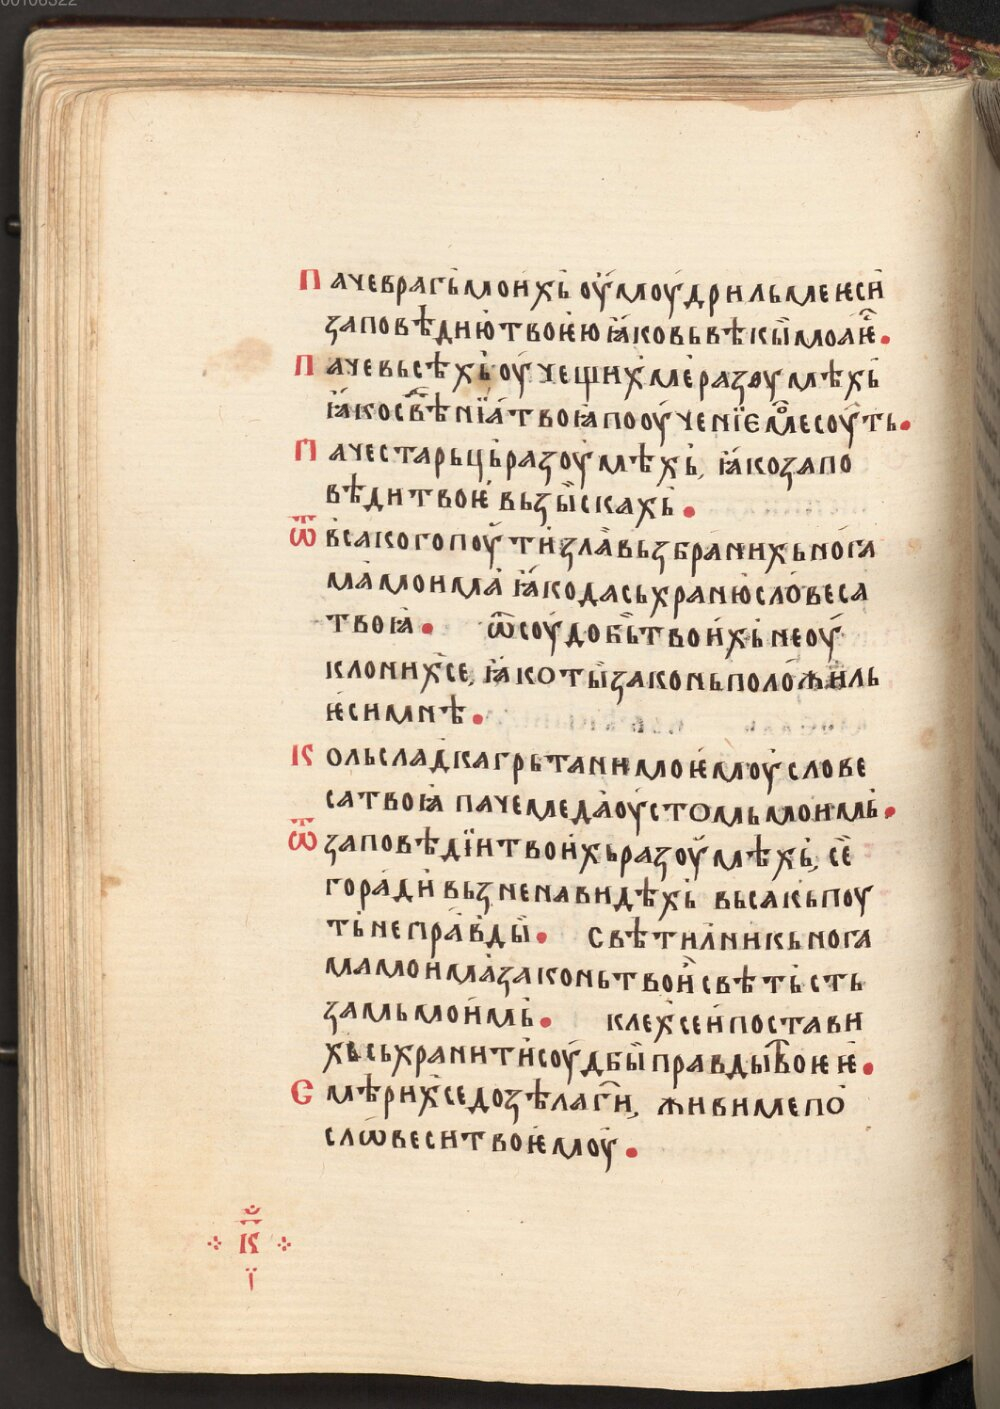 00106322
Паче врагь моихь оумоудриль ме ѥси
заповѣдию твоѥю ꙗко вь вѣкы моа ѥ͡с.
Паче вьсѣхь оучещих ме разоумѣхь
ꙗко свѣнїа твоꙗ пооученїе мо́е соуть.
Паче старьць разоумѣхь, ꙗко запо
вѣди твоѥ вьзыскахь.
Ѿ всакого поути зла вьзбранихь нога
ма моима ꙗко да сьхраню словеса
твоꙗ. ѿ соудобь твоихь не оу
клоних се, ꙗко ты законь положиль
ѥси мнѣ.
Коль сладка грьтани моѥмоу слове
са твоꙗ паче меда оустомь моимь.
Ѿ заповѣдїи твоихь разоумѣхь, се
го ради вьзненавидѣхь вьсякь поу
ть неправды. Свѣтилникь нога
ма моима законь твои свѣть сть
замь моимь. клех се и постави
хь сьхранити соудбы правды твоѥѥ.
Смѣрих се до зѣла ги, живи ме по
слѡвеси твоѥмоу.
К
ї